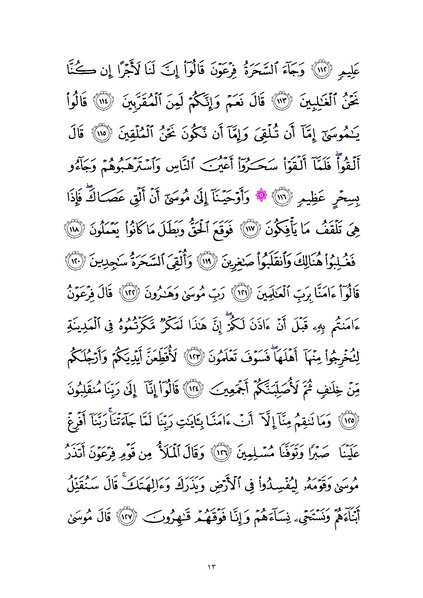 عَلِيمٍ ١١٢ وَجَآءَ ٱلسَّحَرَةُ فِرْعَوْنَ قَالُوٓا۟ إِنَّ لَنَا لَأَجْرًا إِن كُنَّا
نَحْنُ ٱلْغَٰلِبِينَ ١١٣ قَالَ نَعَمْ وَإِنَّكُمْ لَمِنَ ٱلْمُقَرَّبِينَ ١١٤ قَالُوا۟
يَٰمُوسَىٰٓ إِمَّآ أَن تُلْقِىَ وَإِمَّآ أَن نَّكُونَ نَحْنُ ٱلْمُلْقِينَ ١١٥ قَالَ
أَلْقُوا۟ۖ فَلَمَّآ أَلْقَوْا۟ سَحَرُوٓا۟ أَعْيُنَ ٱلنَّاسِ وَٱسْتَرْهَبُوهُمْ وَجَآءُو
بِسِحْرٍ عَظِيمٍ ١١٦ ۞ وَأَوْحَيْنَآ إِلَىٰ مُوسَىٰٓ أَنْ أَلْقِ عَصَاكَۖ فَإِذَا
هِىَ تَلْقَفُ مَا يَأْفِكُونَ ١١٧ فَوَقَعَ ٱلْحَقُّ وَبَطَلَ مَا كَانُوا۟ يَعْمَلُونَ ١١٨
فَغُلِبُوا۟ هُنَالِكَ وَٱنقَلَبُوا۟ صَٰغِرِينَ ١١٩ وَأُلْقِىَ ٱلسَّحَرَةُ سَٰجِدِينَ ١٢٠
قَالُوٓا۟ ءَامَنَّا بِرَبِّ ٱلْعَٰلَمِينَ ١٢١ رَبِّ مُوسَىٰ وَهَٰرُونَ ١٢٢ قَالَ فِرْعَوْنُ
ءَامَنتُم بِهِۦ قَبْلَ أَنْ ءَاذَنَ لَكُمْۖ إِنَّ هَٰذَا لَمَكْرٌ مَّكَرْتُمُوهُ فِى ٱلْمَدِينَةِ
لِتُخْرِجُوا۟ مِنْهَآ أَهْلَهَاۖ فَسَوْفَ تَعْلَمُونَ ١٢٣ لَأُقَطِّعَنَّ أَيْدِيَكُمْ وَأَرْجُلَكُم
مِّنْ خِلَٰفٍ ثُمَّ لَأُصَلِّبَنَّكُمْ أَجْمَعِينَ ١٢٤ قَالُوٓا۟ إِنَّآ إِلَىٰ رَبِّنَا مُنقَلِبُونَ
١٢٥ وَمَا تَنقِمُ مِنَّآ إِلَّآ أَنْ ءَامَنَّا بِـَٔايَٰتِ رَبِّنَا لَمَّا جَآءَتْنَاۚ رَبَّنَآ أَفْرِغْ
عَلَيْنَا صَبْرًا وَتَوَفَّنَا مُسْلِمِينَ ١٢٦ وَقَالَ ٱلْمَلَأُ مِن قَوْمِ فِرْعَوْنَ أَتَذَرُ
مُوسَىٰ وَقَوْمَهُۥ لِيُفْسِدُوا۟ فِى ٱلْأَرْضِ وَيَذَرَكَ وَءَالِهَتَكَۚ قَالَ سَنُقَتِّلُ
أَبْنَآءَهُمْ وَنَسْتَحْىِۦ نِسَآءَهُمْ وَإِنَّا فَوْقَهُمْ قَٰهِرُونَ ١٢٧ قَالَ مُوسَىٰ
١٣